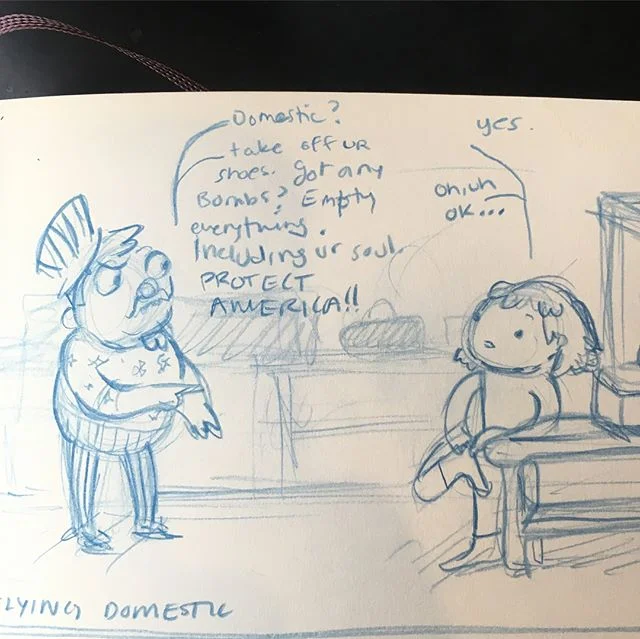 Domestic?
take off ur
shoes. Got any
Bombs? Empty
everything.
Including ur soul.
PROTECT
AMERICA!!
yes.
oh, uh
ok...
FLYING DOMESTIC